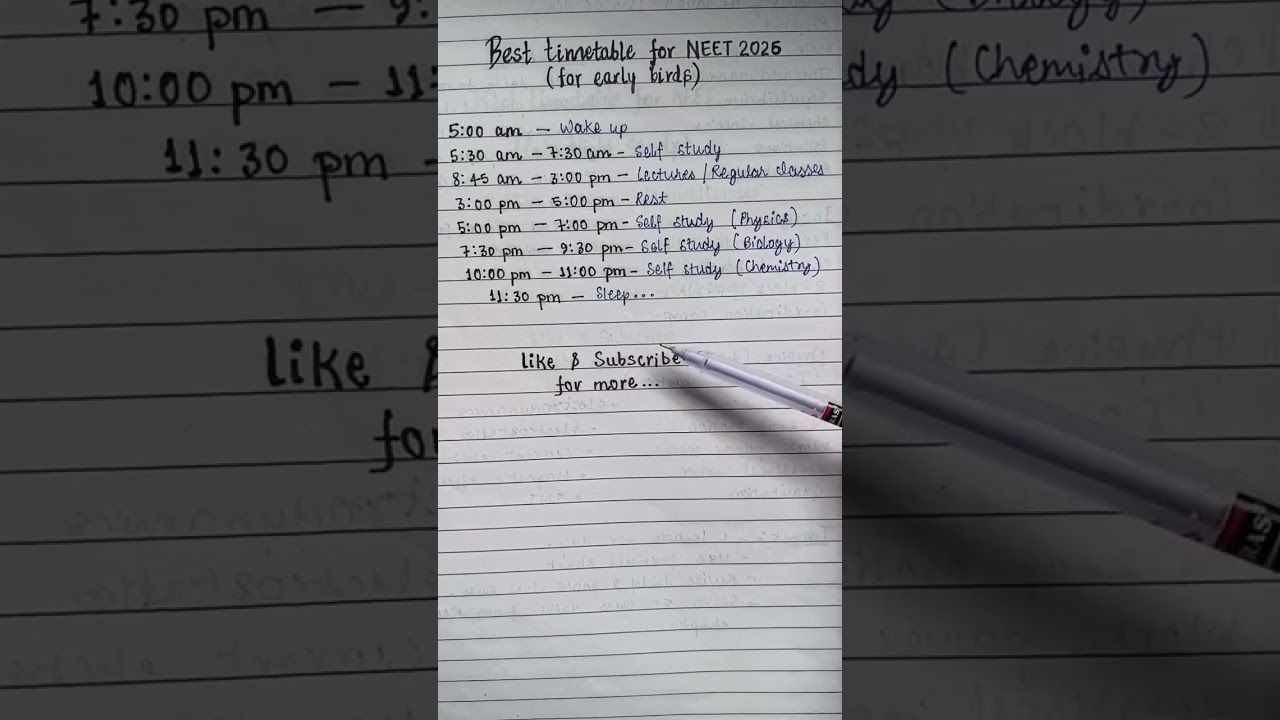 Best timetable for NEET 2026
(for early birds)
5:00 am - Wake up
5:30 am - 7:30 am - Self study
8:45 am - 3:00 pm - Lectures / Regular classes
3:00 pm - 5:00 pm - Rest
5:00 pm - 7:00 pm - Self study (Physics)
7:30 pm - 9:30 pm - Self study (Biology)
10:00 pm - 11:00 pm - Self study (Chemistry)
11:30 pm - Sleep...
like & Subscribe
for more...